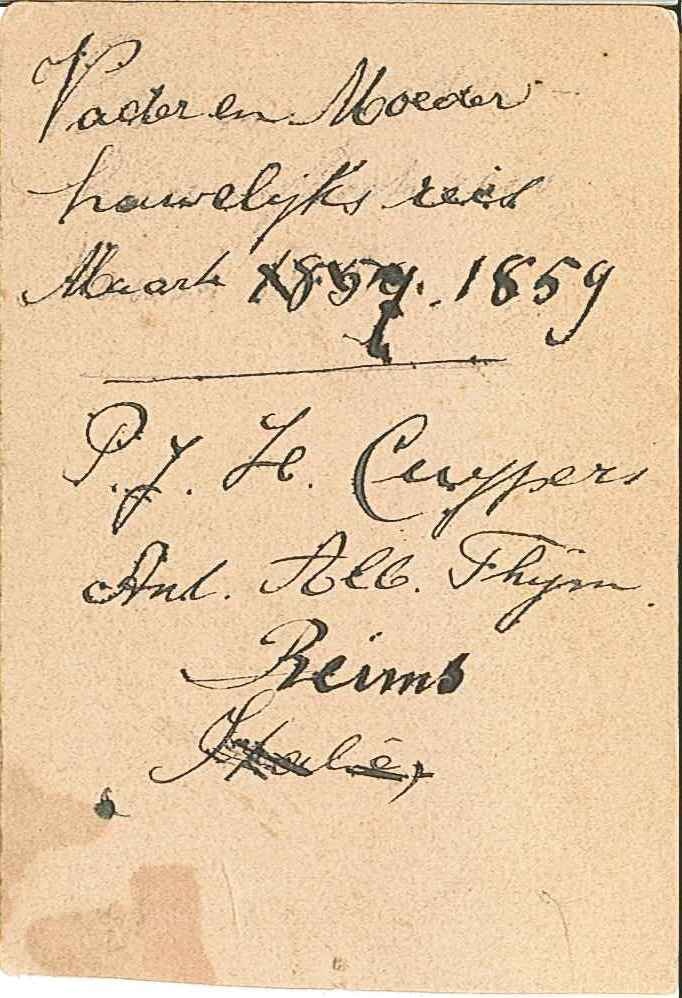 Vader en Moeder
houwelijks reis
Maart 1859. 1859
P. J. H. Cuypers
Ant. Alb. Thijm.
Reims
Italië,